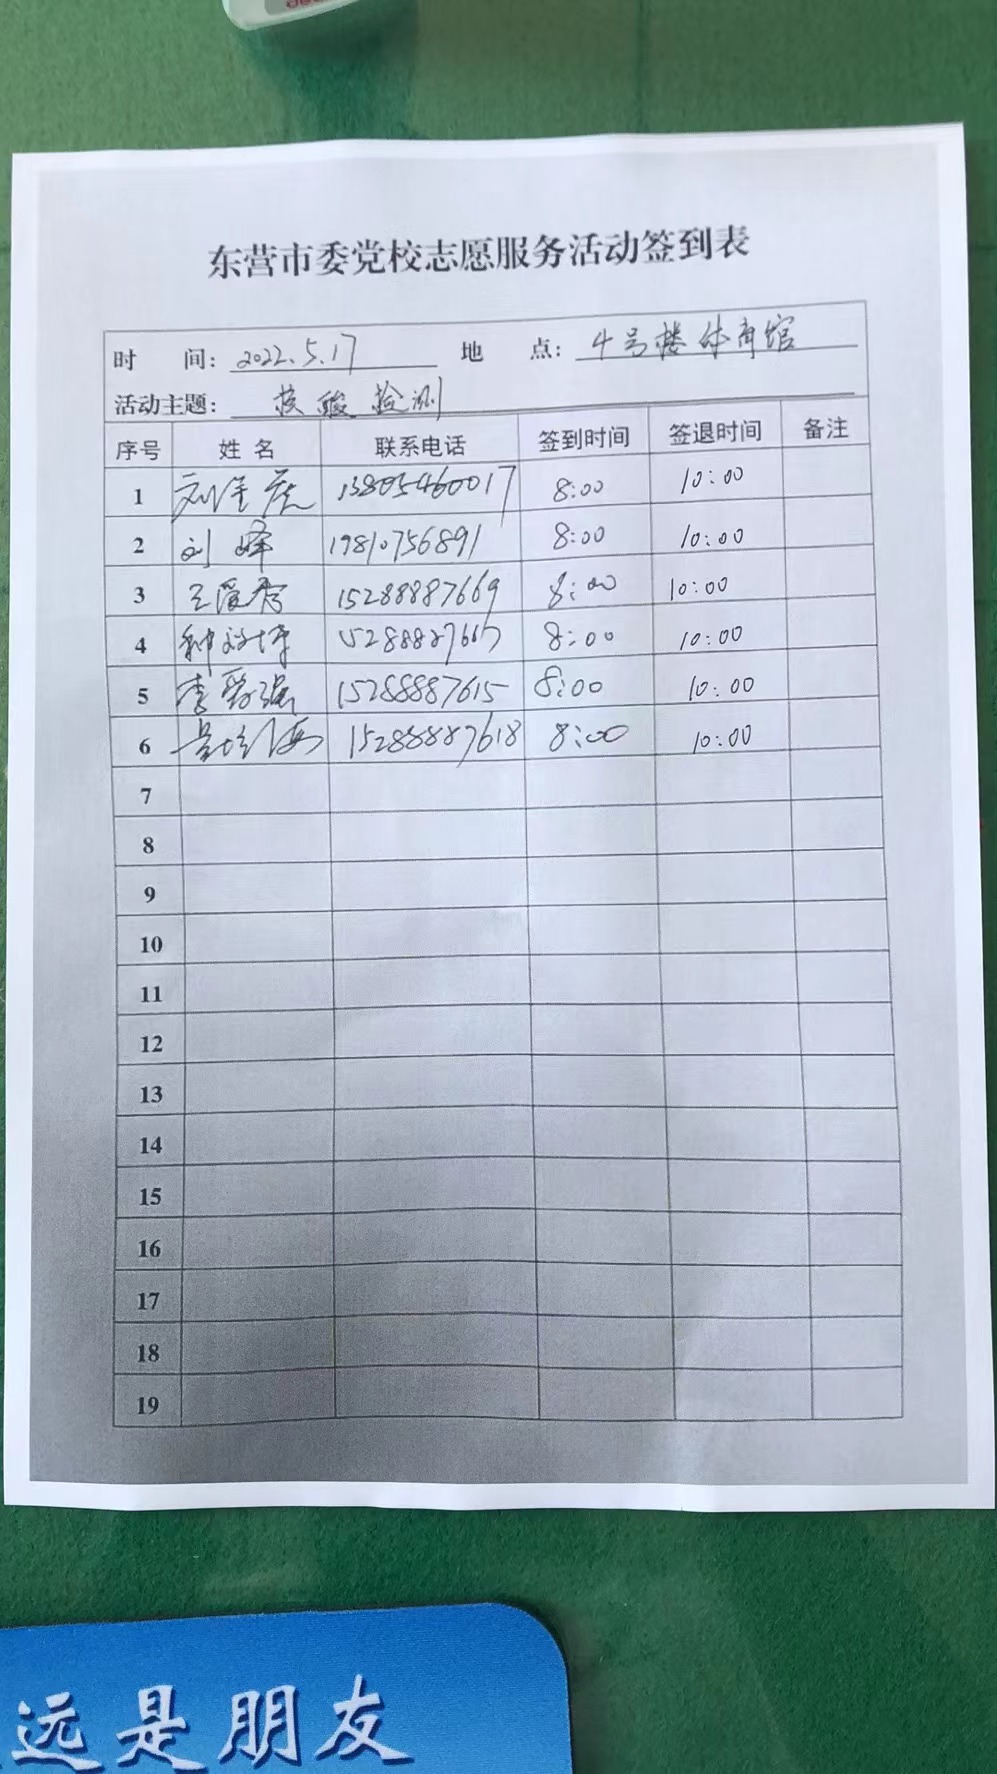 东营市委党校志愿服务活动签到表
时 间: 2022.5.17 地 点: 4号楼体育馆
活动主题: 核酸检测
序号 姓名 联系电话 签到时间 签退时间 备注
1 13805460017 8:00 10:00
2 刘峰 19810756891 8:00 10:00
3 王爱香 15288887669 8:00 10:00
4 8:00 10:00
5 李 强 15288887615 8:00 10:00
6 15288887618 8:00 10:00
7
8
9
10
11
12
13
14
15
16
17
18
19
远是朋友